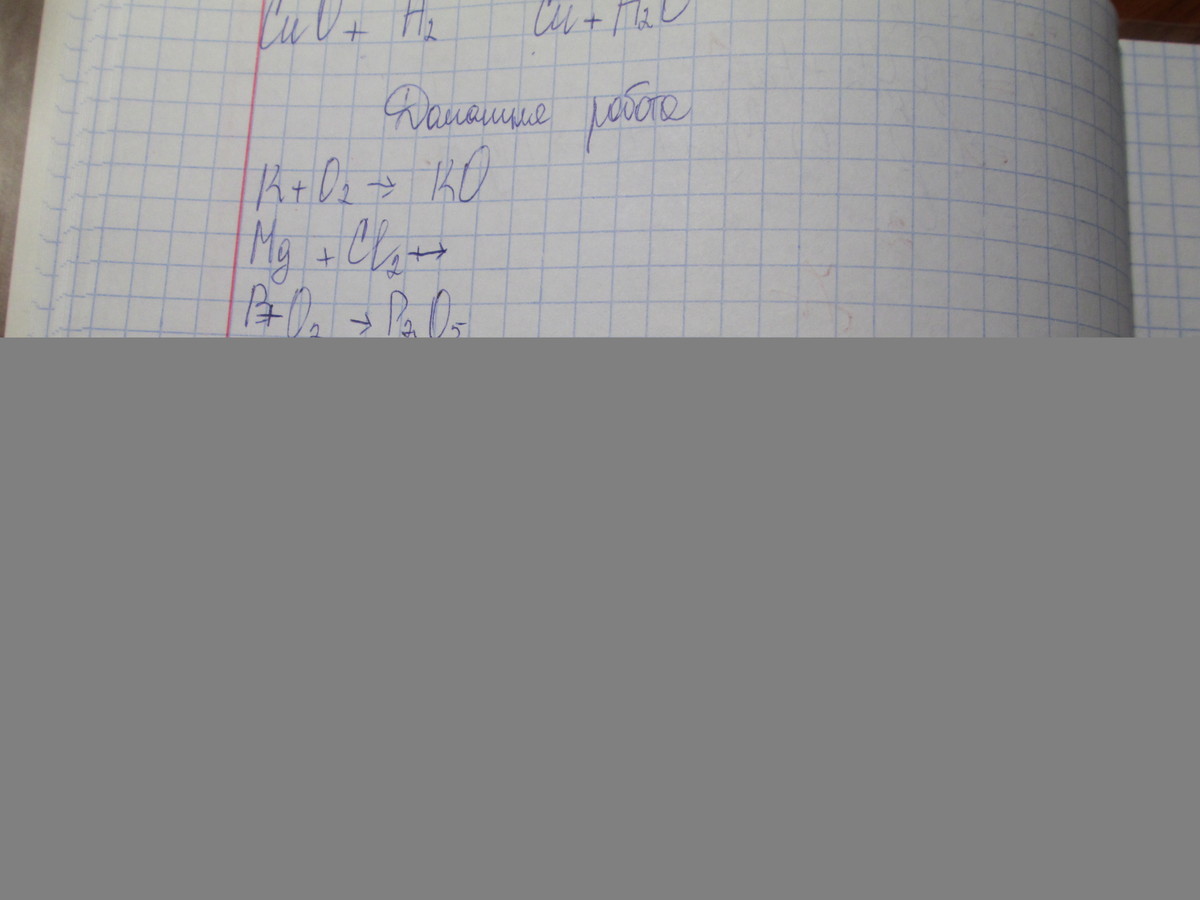 CuO + H2 Cu + H2O
Домашняя работа
K + O2 → KO
Mg + Cl2 →
P + O2 → P2O5